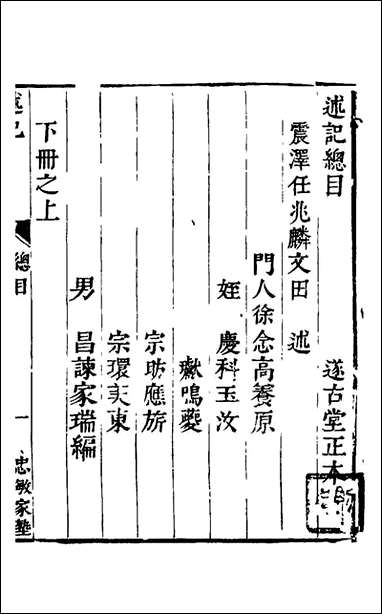 述記總目 遂古堂正本
震澤任兆麟文田 述
門人徐念高養原
姪 慶科玉汝
獻鳴夔
宗昉應旂
宗環天東
男 昌諫家瑞編
下冊之上
述記 總目 一 忠敏家塾